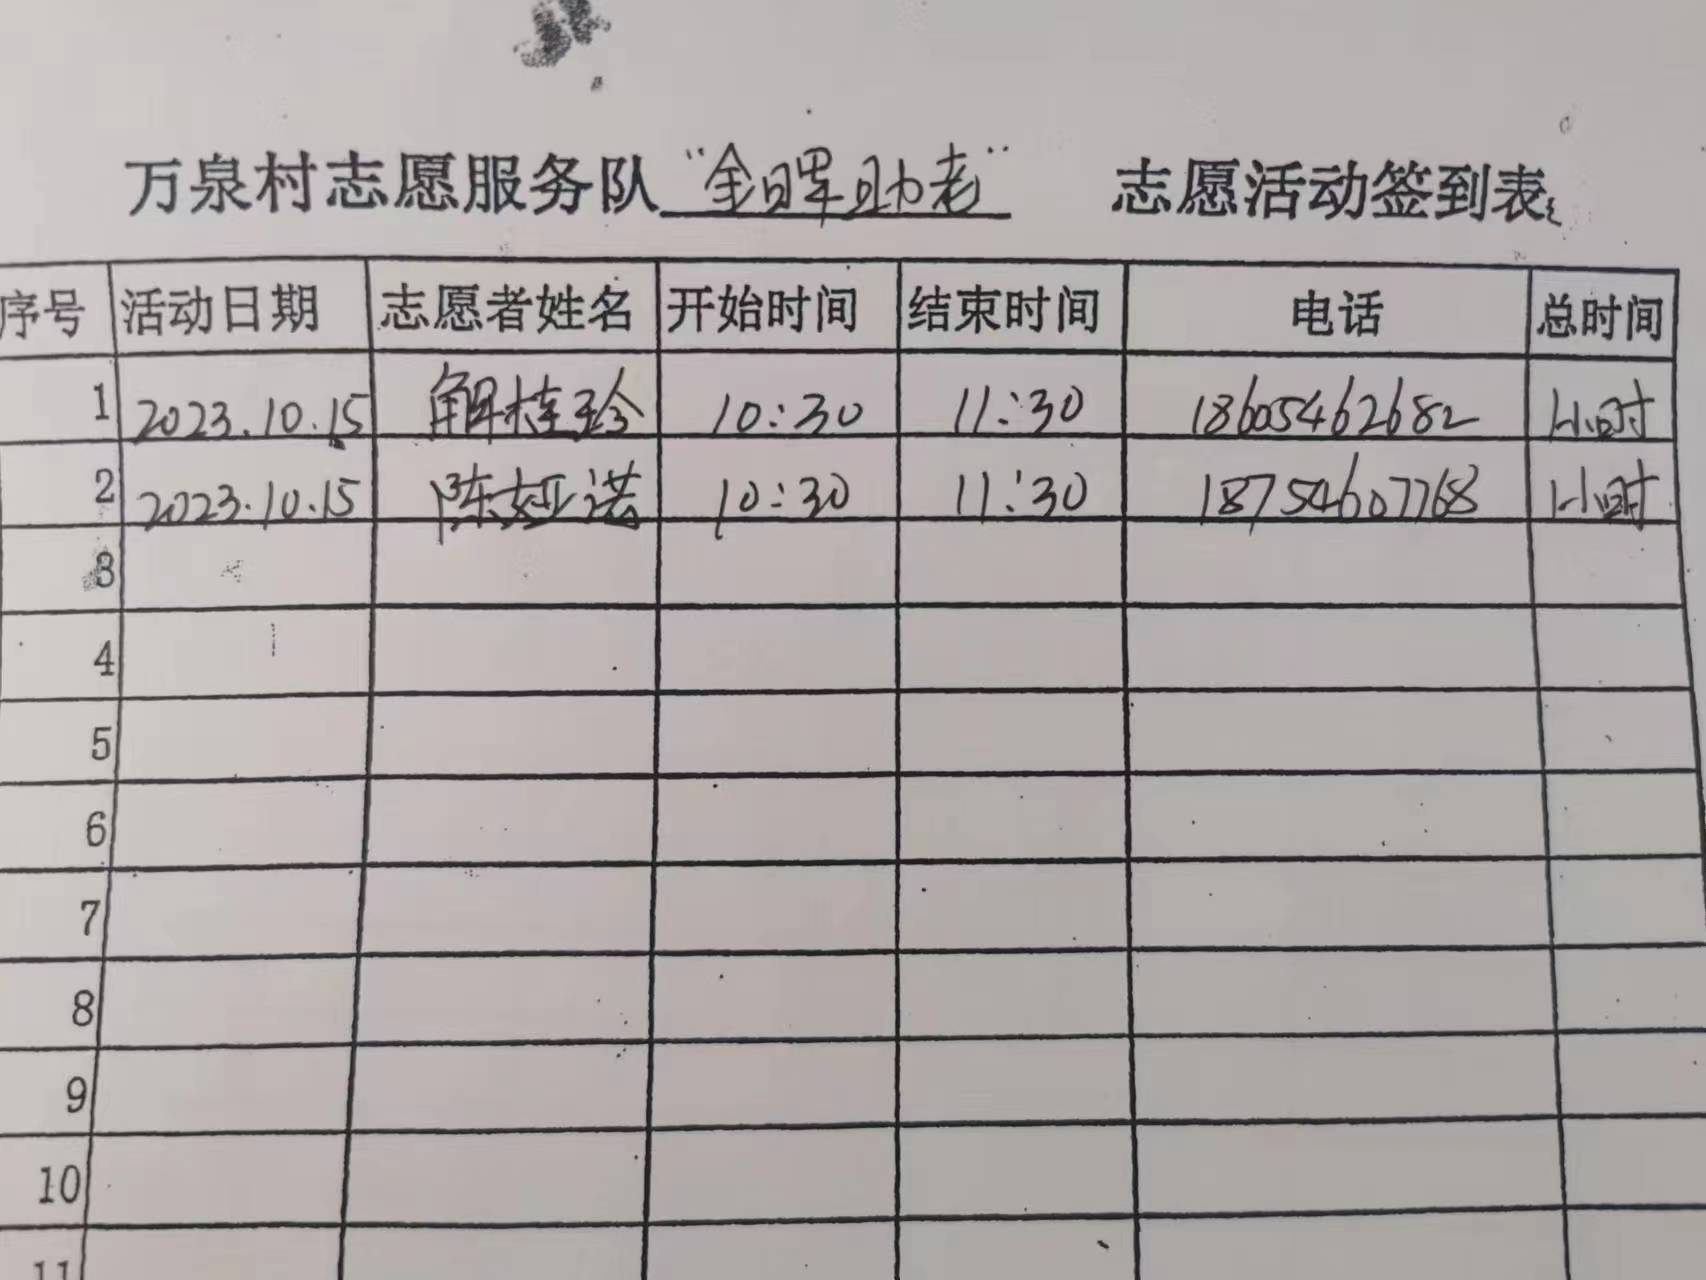 万泉村志愿服务队“金晖助老” 志愿活动签到表
序号 活动日期 志愿者姓名 开始时间 结束时间 电话 总时间
1 2023.10.15 解桂珍 10:30 11:30 18605462682 1小时
2 2023.10.15 陈娅诺 10:30 11:30 18754607768 1小时
3
4
5
6
7
8
9
10
11